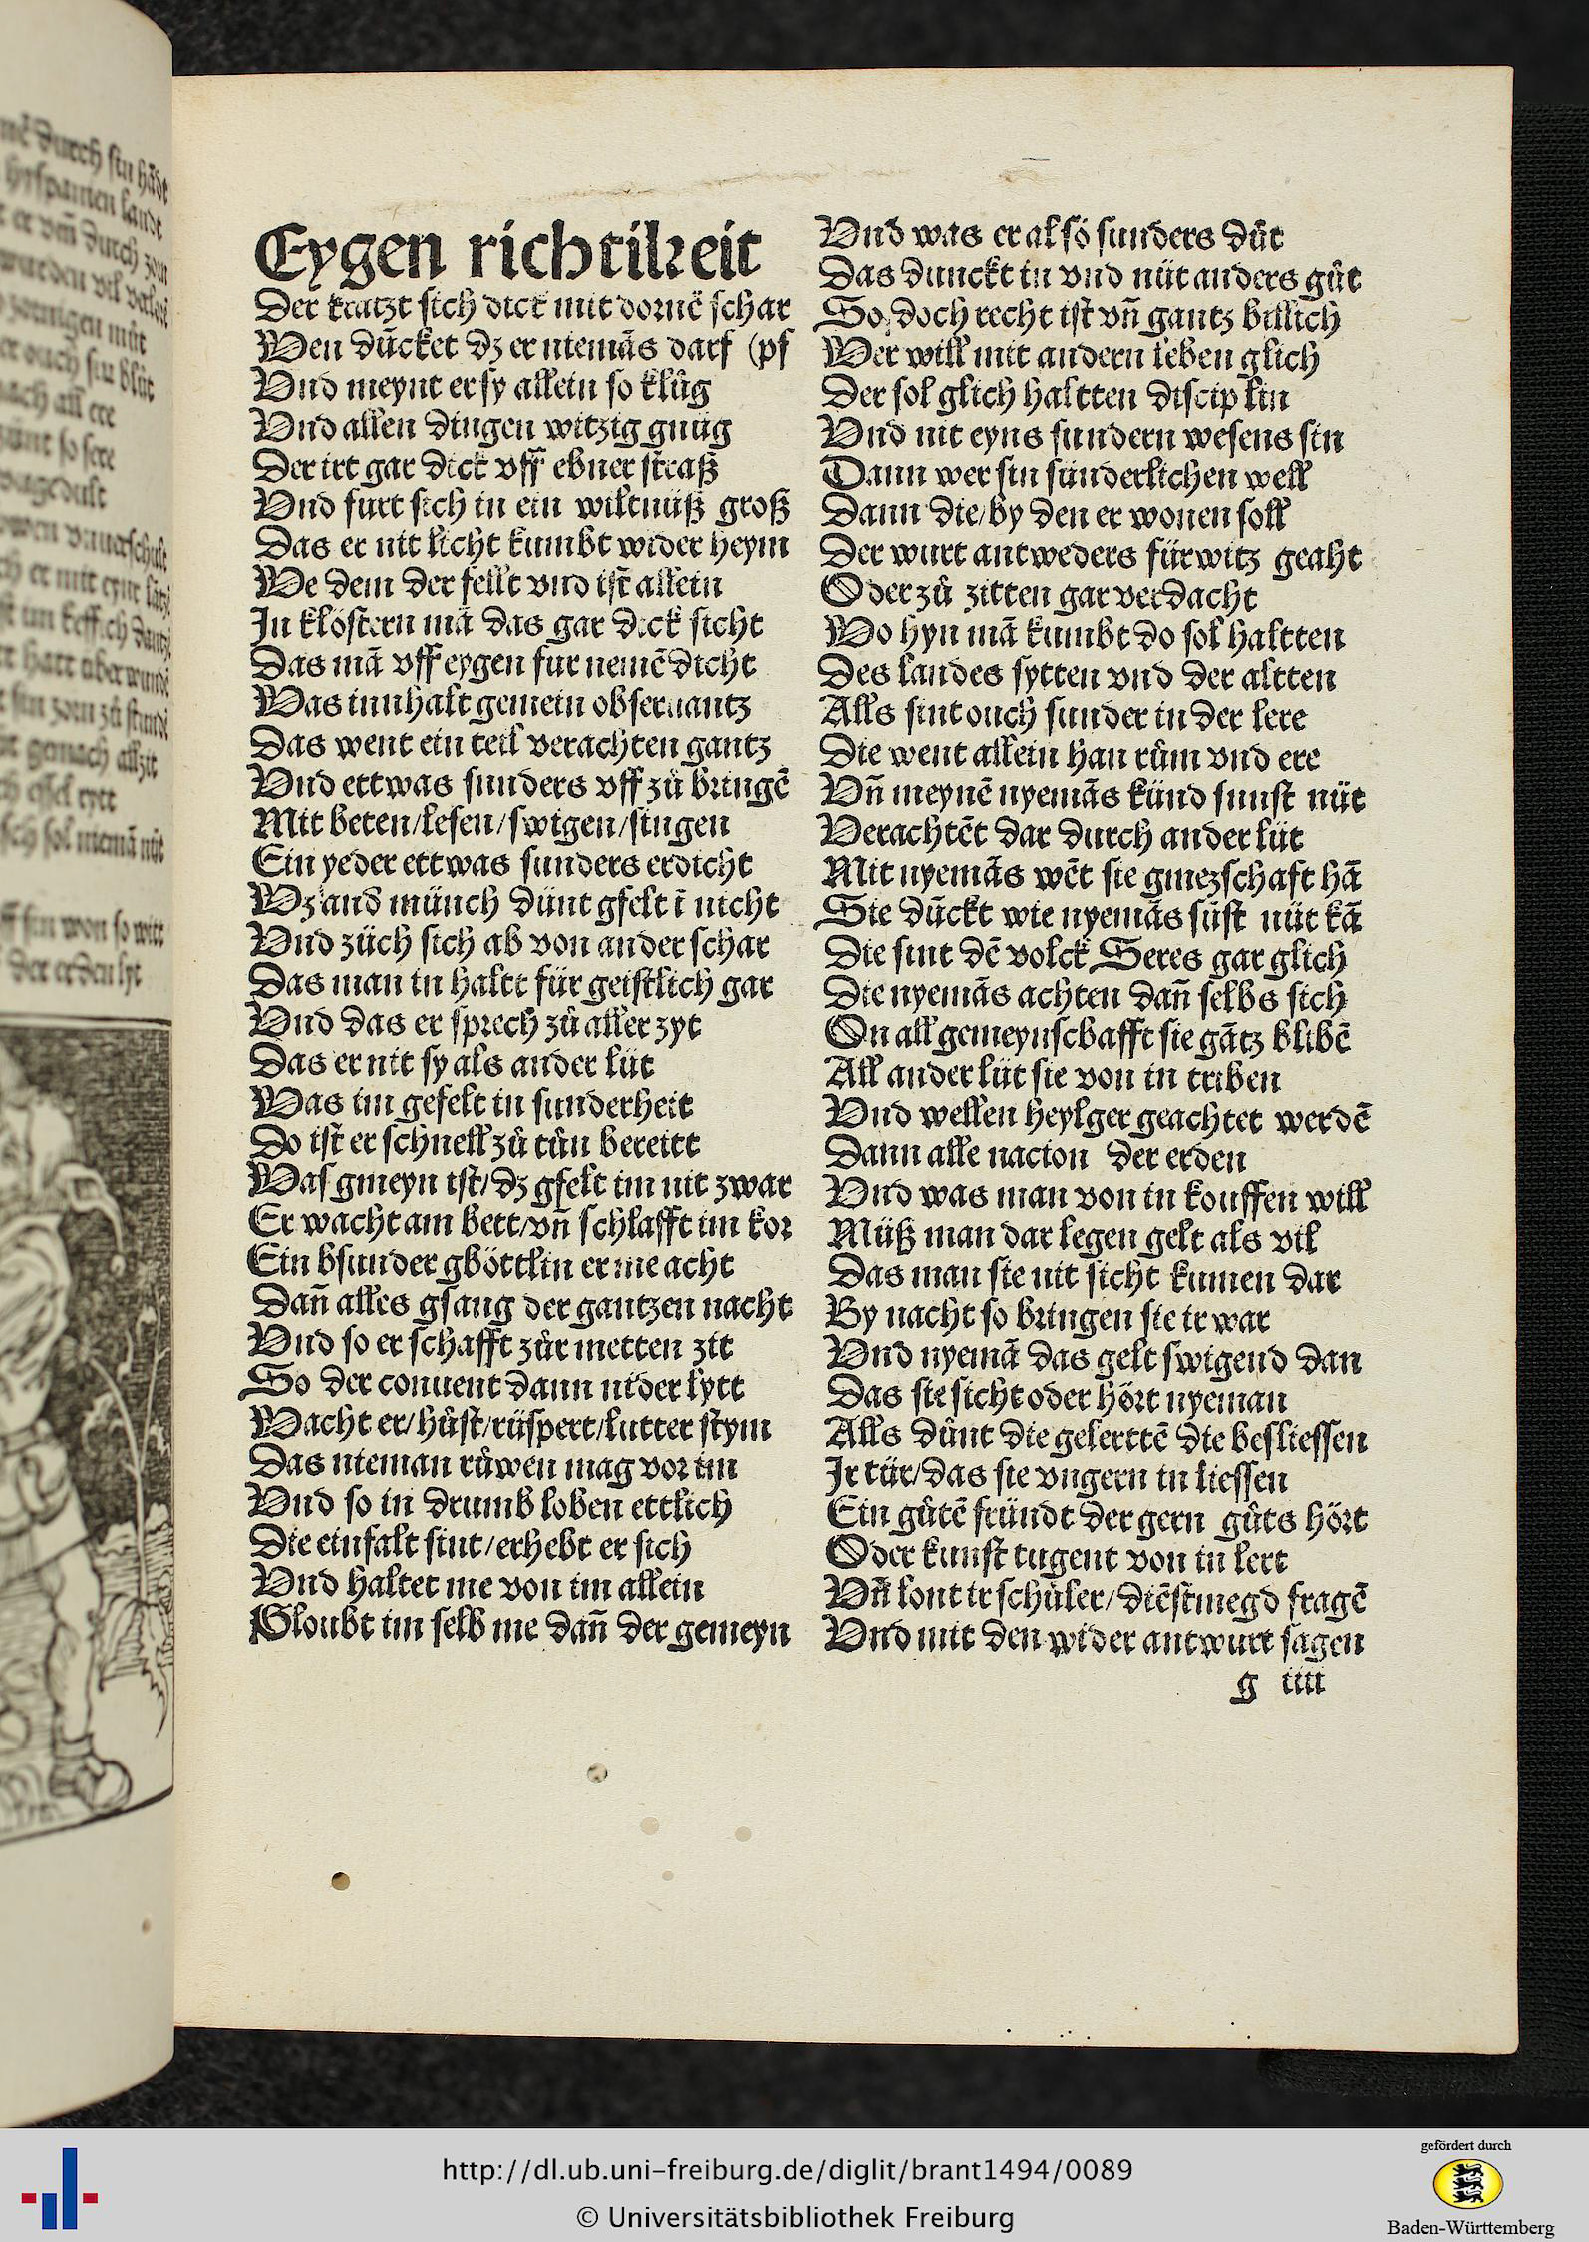 Eygen richtikeit
Der kratzt sich dick mit dornē schar
Wen dūcket dz er niemās darf (pf
Vnd meynt er sy allein so klůg
Vnd allen dingen witzig gnůg
Der irt gar dick vff ebner straß
Vnd furt sich in ein wiltnüß groß
Das er nit licht kumbt wider heym
We dem der fellt vnd ist allein
In klöstern mā das gar dick sicht
Das mā vff eygen fur nemē dicht
Was innhalt gemein obseruantz
Das went ein teil verachten gantz
Vnd ettwas sunders vff zů bringē
Mit beten/lesen/swigen/singen
Ein yeder ettwas sunders erdicht
Wz and münch dünt gfelt ī nicht
Vnd züch sich ab von ander schar
Das man in haltt für geistlich gar
Vnd das er sprech zů aller zyt
Das er nit sy als ander lüt
Was im gefelt in sunderheit
Do ist er schnell zů tůn bereitt
Was gmeyn ist/dz gfelt im nit zwar
Er wacht am bett/vn̄ schlafft im kor
Ein bsunder gböttlin er me acht
Dan̄ alles gsang der gantzen nacht
Vnd so er schafft zůr metten zit
So der conuent dann nider lytt
Wacht er/hůst/rüspert/lutter stym
Das nieman růwen mag vor im
Vnd so in drumb loben ettlich
Die einfalt sint/erhebt er sich
Vnd haltet me von im allein
Gloubt im selb me dan̄ der gemeyn
Vnd was er al so sunders důt
Das dunckt in vnd nüt anders gůt
So doch recht ist vn̄ gantz billich
Wer will mit andern leben glich
Der sol glich haltten disciplin
Vnd nit eyns sundern wesens sin
Dann wer sin sünderlichen well
Dann die/by den er wonen soll
Der wurt antweders fürwitz geaht
Oder zů zitten gar verdacht
Wo hyn mā kumbt do sol haltten
Des landes sytten vnd der altten
Alls sint ouch sunder in der lere
Die went allein han rům vnd ere
Vn̄ meynē nyemās künd sunst nüt
Verachtēt dar durch ander lüt
Mit nyemās wēt sie gmezschaft hā
Sie dūckt wie nyemās sūst nüt kā
Die sint dē volck Seres gar glich
Die nyemās achten dan̄ selbs sich
On all gemeynschafft sie gātz blibē
All ander lüt sie von in triben
Vnd wellen heylger geachtet werdē
Dann alle nacion der erden
Vnd was man von in kouffen will
Müß man dar legen gelt als vil
Das man sie nit sicht kumen dar
By nacht so bringen sie ir war
Vnd nyemā das gelt swigend dan
Das sie sicht oder hört nyeman
Alls důnt die gelerttē die besliessen
Ir tür/das sie vngern in liessen
Ein gůtē fründt der gern gůts hört
Oder kunst tugent von in lert
Vn̄ lont ir schůler/diēstmegd fragē
Vnd mit den wider antwurt sagen
g iiii
http://dl.ub.uni-freiburg.de/diglit/brant1494/0089
© Universitätsbibliothek Freiburg
gefördert durch
Baden-Württemberg